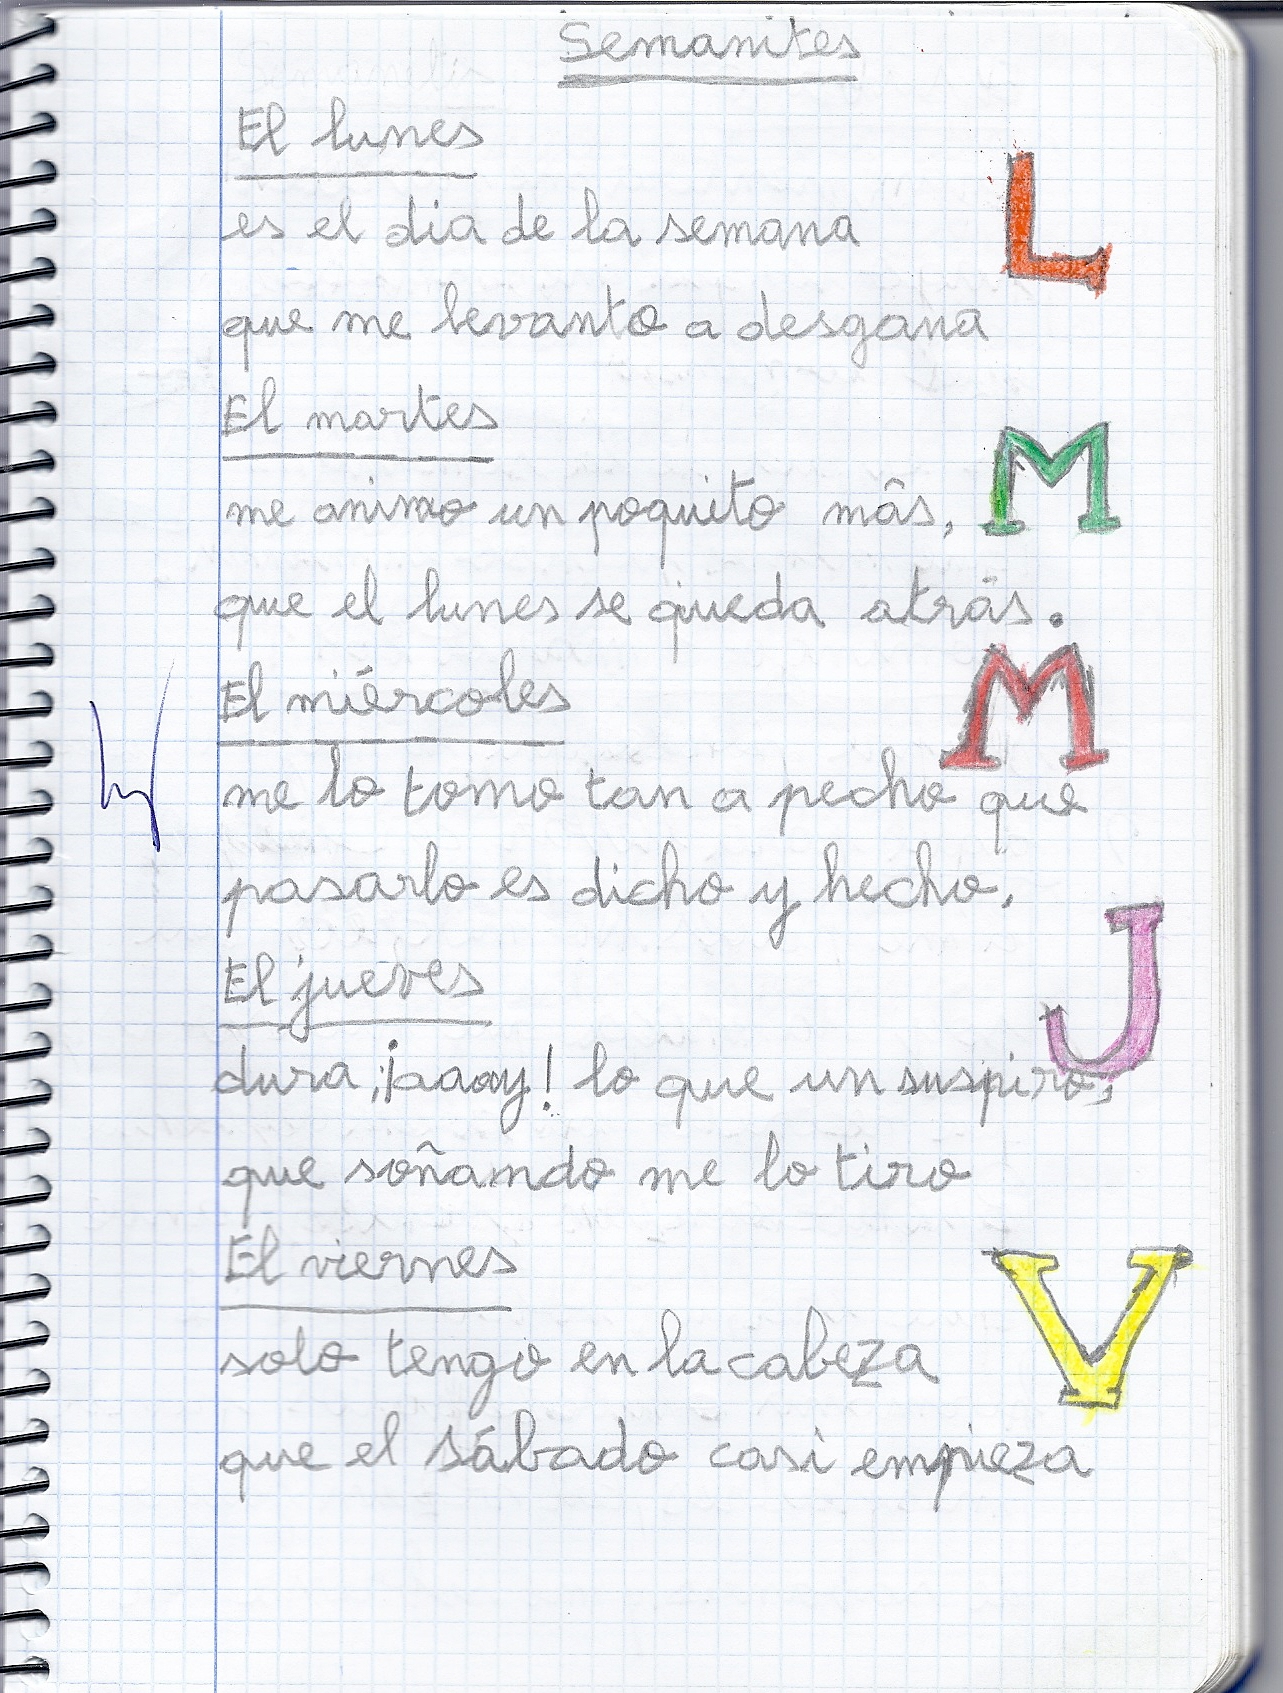 Semanites
El lunes
L
es el dia de la semana
que me levanto a desgana
El martes
M
me animo un poquito más,
que el lunes se queda atrás.
El miércoles
M
me lo tomo tan a pecho que
pasarlo es dicho y hecho,
El jueves
J
dura, ¡aaay! lo que un suspiro,
que soñando me lo tiro
El viernes
V
solo tengo en la cabeza
que el sábado casi empieza